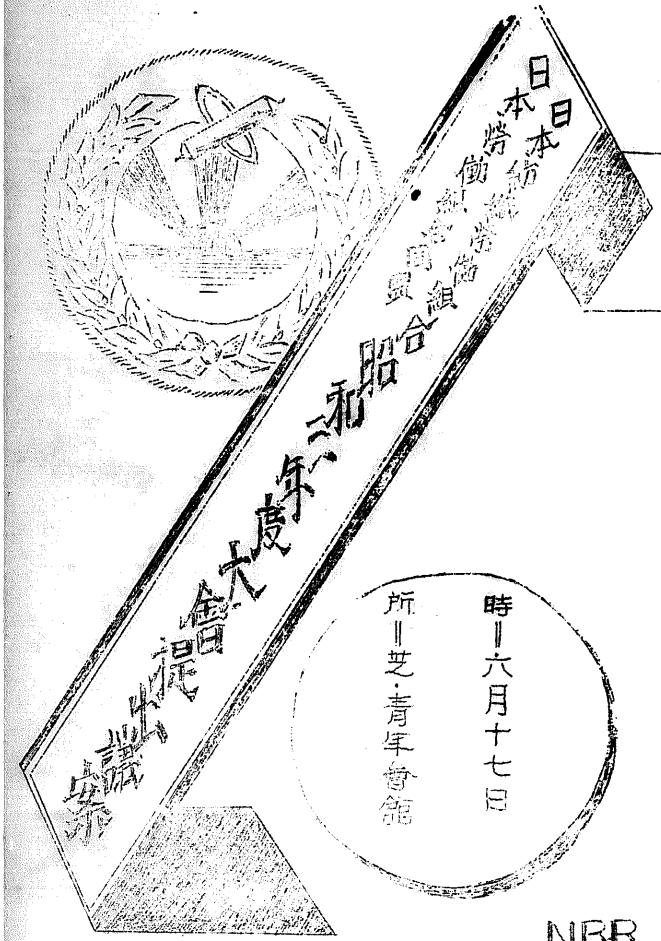 日本紡織勞働組合
日本勞働組合同盟
昭和年度大會提出議案
時＝六月十七日
所＝芝・青年會館